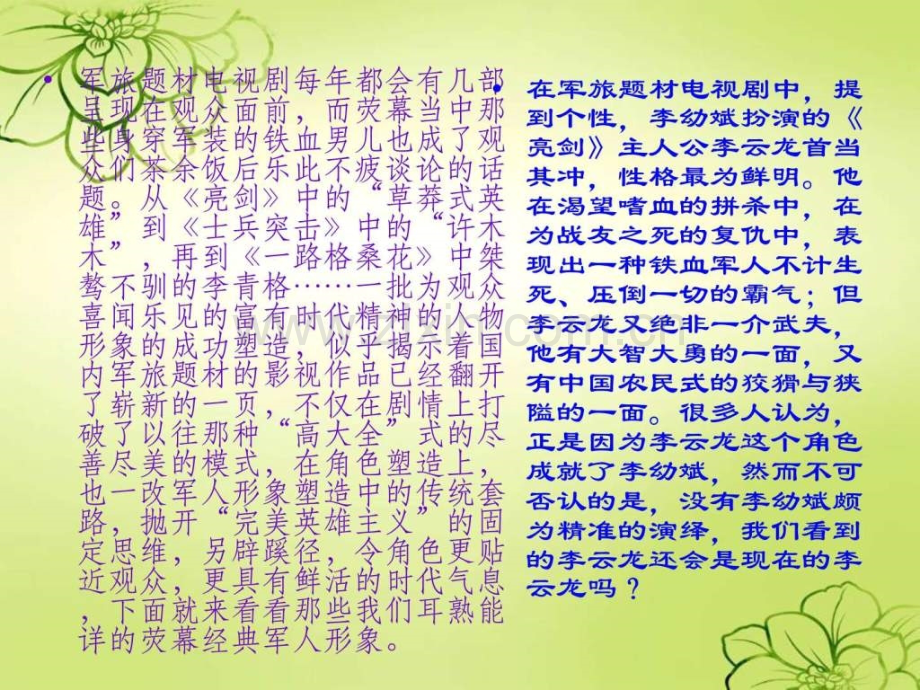 • 军旅题材电视剧每年都会有几部
呈现在观众面前，而荧幕当中那
些身穿军装的铁血男儿也成了观
众们茶余饭后乐此不疲谈论的话
题。从《亮剑》中的“草莽式英
雄”到《士兵突击》中的“许木
木”，再到《一路格桑花》中桀
骜不驯的李青格……一批为观众
喜闻乐见的富有时代精神的人物
形象的成功塑造，似乎揭示着国
内军旅题材的影视作品已经翻开
了崭新的一页，不仅在剧情上打
破了以往那种“高大全”式的尽
善尽美的模式，在角色塑造上，
也一改军人形象塑造中的传统套
路，抛开“完美英雄主义”的固
定思维，另辟蹊径，令角色更贴
近观众，更具有鲜活的时代气息
，下面就来看看那些我们耳熟能
详的荧幕经典军人形象。
• 在军旅题材电视剧中，提
到个性，李幼斌扮演的《
亮剑》主人公李云龙首当
其冲，性格最为鲜明。他
在渴望嗜血的拼杀中，在
为战友之死的复仇中，表
现出一种铁血军人不计生
死、压倒一切的霸气；但
李云龙又绝非一介武夫，
他有大智大勇的一面，又
有中国农民式的狡猾与狭
隘的一面。很多人认为，
正是因为李云龙这个角色
成就了李幼斌，然而不可
否认的是，没有李幼斌颇
为精准的演绎，我们看到
的李云龙还会是现在的李
云龙吗？
www.zixin.com.cn